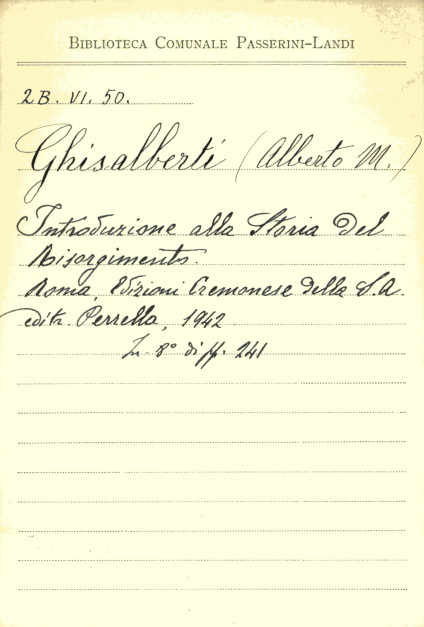 BIBLIOTECA COMUNALE PASSERINI-LANDI
2B. VI. 50.
Ghisalberti (Alberto M.)
Introduzione alla Storia del
Risorgimento.
Roma, Edizioni Cremonese della S.A.
editr. Perrella, 1942
In 8° di pp. 241